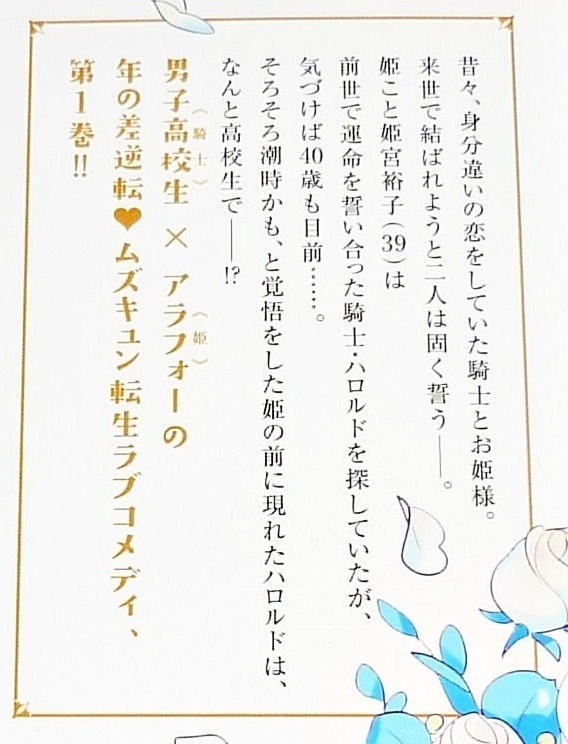 昔々、身分違いの恋をしていた騎士とお姫様。
来世で結ばれようと二人は固く誓う――。
姫こと姫宮裕子(39)は
前世で運命を誓い合った騎士・ハロルドを探していたが、
気づけば40歳も目前……。
そろそろ潮時かも、と覚悟をした姫の前に現れたハロルドは、
なんと高校生で――!?
〈騎士〉 〈姫〉
男子高校生 × アラフォーの
年の差逆転♥ムズキュン転生ラブコメディ、
第1巻!!